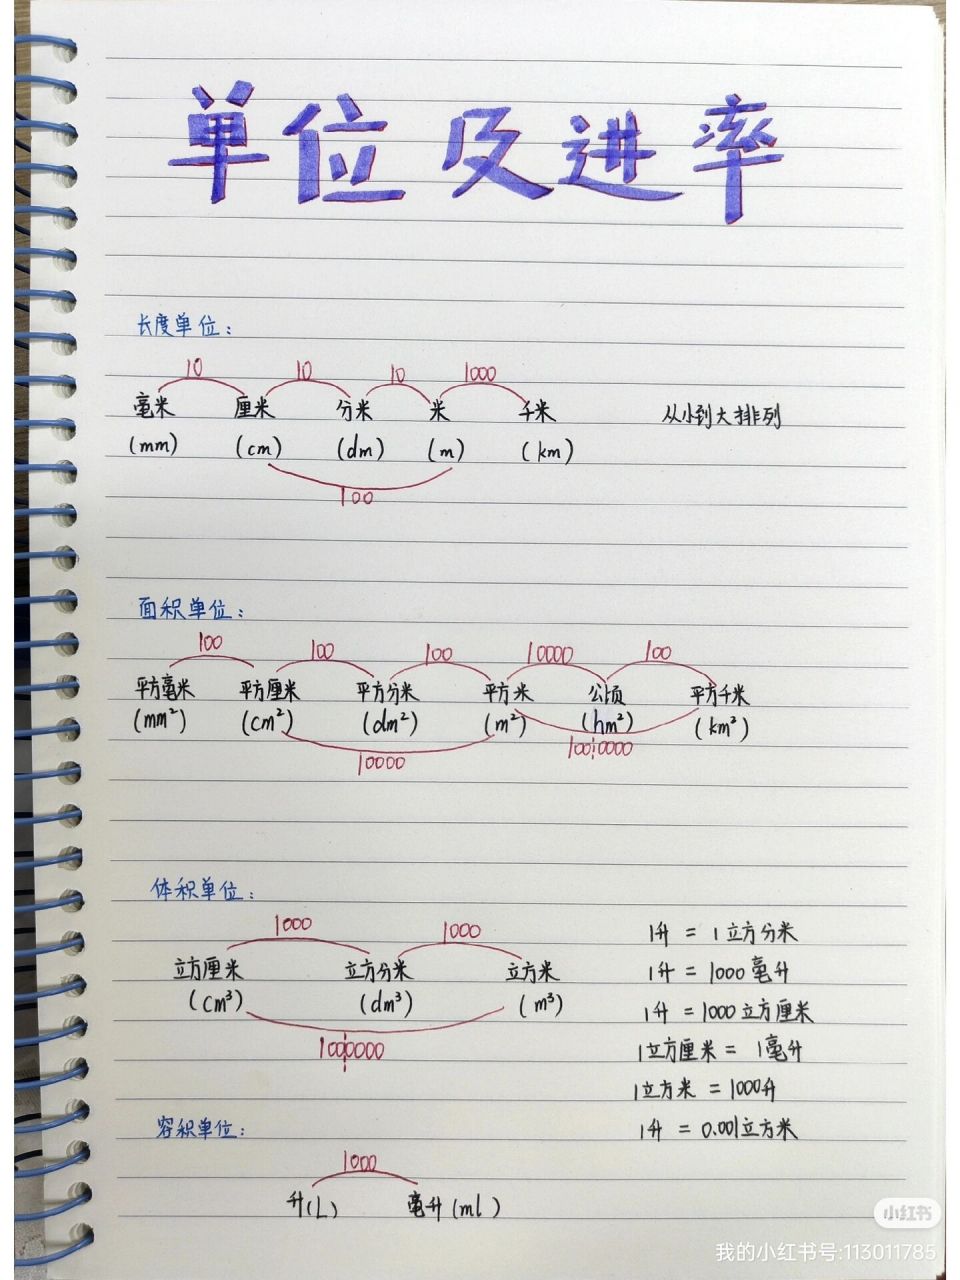 单位及进率
长度单位:
10 10 10 1000
毫米 厘米 分米 米 千米 从小到大排列
(mm) (cm) (dm) (m) (km)
100
面积单位:
100 100 100 10000 100
平方毫米 平方厘米 平方分米 平方米 公顷 平方千米
(mm²) (cm²) (dm²) (m²) (hm²) (km²)
10000 1000000
体积单位:
1000 1000
立方厘米 立方分米 立方米
(cm³) (dm³) (m³)
1000000
1升 = 1立方分米
1升 = 1000毫升
1升 = 1000立方厘米
1立方厘米 = 1毫升
1立方米 = 1000升
1升 = 0.001立方米
容积单位:
1000
升(L) 毫升(ml)
小红书
我的小红书号:113011785